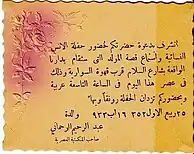 نتشرف بدعوة حضرتكم لحضور حفلة الانس
النسائية واستماع قصة المولد التي ستقام بدارنا
الواقعة بشارع السلام قرب قهوة السوارية وذلك
في عصر هذا اليوم في الساعة التاسعة عربية
وبحضوركم تزدان الحفلة رونقاً وبهاً
٢٥ ربيع الاول ٣٥٢ ١٦ اب ٩٣٣ والدة
عبد الرحيم الرحماني
صاحب المكتبة العصرية